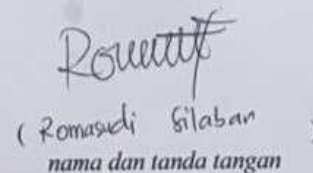 ( Romasudi Silaban )
nama dan tanda tangan